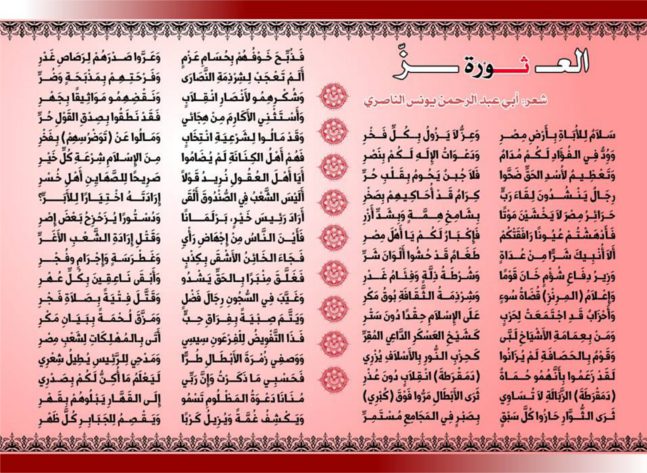 العـــ ثـــورة ـــزّ
شعر: أبي عبد الرحمن يونس الناصري
سَلَامٌ لِلأُبَاةِ بِأَرْضِ مِصْرِ وَعِزٌّ لَا يَزُولُ بِكُلِّ فَخْرِ
وَوُدٌّ فِي الفُؤَادِ لَكُمْ مُدَامٌ وَدَعْوَاتُ الإِلَهِ لَكُمْ بِنَصْرِ
وَتَعْظِيمٌ لِأُسْدِ الحَقِّ ضَحَّوْا فَلَا جُبْنٌ يَحُومُ بِقَلْبِ حُرِّ
رِجَالٌ يَنْشُدُونَ لِقَاءَ رَبٍّ كِرَامٌ قَدْ أُحَاكِيهِمْ بِصَخْرِ
حَرَائِرُ مِصْرَ لَا يَخْشَيْنَ مَوْتًا بِشَامِخِ هِمَّةٍ وَبِشَدِّ أَزْرِ
فَأَدْهَشْتُمْ عُيُونًا رَافَقَتْكُمْ فَإِكْبَارٌ لَكُمْ يَا أَهْلَ مِصْرِ
أَلَا أُنْبِيكَ شَرًّا مِنْ عُدَاةٍ طَغَامٌ قَدْ حُشُوا أَلْوَانَ شَرِّ
وَزِيرُ دِفَاعِ شُؤْمٍ خَانَ قَوْمًا وَشُرْطَةُ ذِلَّةٍ وَفِئَامُ غَدْرِ
وَإِعْلَامُ (المِرِنْزِ) قُضَاةُ سُوءٍ وَشِرْذِمَةُ الثَّقَافَةِ بُوقُ مَكْرِ
وَأَحْزَابٌ قَدِ اجْتَمَعَتْ لِحَرْبٍ عَلَى الإِسْلَامِ حِقْدًا دُونَ سَتْرِ
وَمَنْ بِعِمَامَةِ الأَشْيَاخِ لَبَّى كَشَيْخِ العَسْكَرِ الدَّاعِي المُقِرِّ
وَقَوْمٌ بِالحَصَافَةِ لَمْ يُزَانُوا كَحِزْبِ النُّورِ بِالأَسْلَافِ يُزْرِي
لَقَدْ زَعَمُوا بِأَنَّهُمُو حُمَاةٌ (دَمَقْرَطَةَ) انْقِلَابٍ دُونَ عُذْرِ
(دَمَقْرَطَةُ) الزِّبَالَةِ لَا تُسَاوِي ثَرَى الأَبْطَالِ مَرُّوا فَوْقَ (كُبْرِي)
تَرَى الثُّوَّارَ حَازُوا كُلَّ سَبْقٍ بِصَبْرٍ فِي المَجَامِعِ مُسْتَمِرِّ
فَذُبِّحَ خَوْفُهُمْ بِحُسَامِ عَزْمٍ وَعَرَّوْا صَدْرَهُمْ لِرَصَاصِ غَدْرِ
أَلَمْ تَعْجَبْ لِشِرْذِمَةِ النَّصَارَى وَفَرْحَتِهِمْ بِمَذْبَحَةٍ وَضُرِّ
وَشُكْرِهِمُو لِأَنْصَارِ انْقِلَابٍ وَنَقْضِهِمُو مَوَاثِيقًا بِجَهْرِ
وَأَسْتَثْنِي الأَكَارِمَ مِنْ هِجَائِي فَقَدْ نَطَقُوا بِصِدْقِ القَوْلِ حُرِّ
وَقَدْ مَالُوا لِشَرْعِيَّةِ انْتِخَابٍ وَمَالُوا عَنْ (تَوَضْرُسِهِمْ) بِفَخْرِ
فَهُمْ أَهْلُ الكِنَانَةِ لَمْ يُضَامُوا مِنَ الإِسْلَامِ شِرْعَةِ كُلِّ خَيْرِ
أَيَا أَهْلَ العُقُولِ نُرِيدُ قَوْلًا صَرِيحًا لِلصَّهَايِنِ أَهْلِ خُسْرِ
أَلَيْسَ الشَّعْبُ فِي الصُّنْدُوقِ أَلْقَى إِرَادَتَهُ اخْتِيَارًا لِلأَبَرِّ؟
أَرَادَ رَئِيسَ خَيْرٍ، بَرْلَمَانًا وَدُسْتُورًا يُزَحْزِحُ بَعْضَ إِصْرِ
فَأَيْنَ النَّاسُ مِنْ إِجْهَاضِ رَأْيٍ وَقَتْلِ إِرَادَةِ الشَّعْبِ الأَغَرِّ
فَجَاءَ الخَائِنُ الأَشْقَى بِكِذْبٍ وَغَطْرَسَةٍ وَإِجْرَامٍ وَفُجْرِ
فَغَلَّقَ مِنْبَرًا بِالحَقِّ يَشْدُو وَأَبْقَى نَاعِقِينَ بِكُلِّ عُهْرِ
وَغَيَّبَ فِي السُّجُونِ رِجَالَ فَضْلٍ وَقَتَّلَ فِتْيَةً بِصَلَاةِ فَجْرِ
وَيَتَّمَ صِبْيَةً بِفِرَاقِ حِبٍّ وَمَزَّقَ لُحْمَةً بِبَيَانِ مَكْرِ
فَذَا التَّفْوِيضُ لِلْفِرْعَوْنِ سِيسِي أَتَى بِالمُهْلِكَاتِ لِشَعْبِ مِصْرِ
وَوَصْفِي زُمْرَةَ الأَبْطَالِ طُرًّا وَمَدْحِي لِلرَّئِيسِ يُطِيلُ شِعْرِي
فَحَسْبِي مَا ذَكَرْتُ وَإِنَّ رَبِّي لَيَعْلَمُ مَا أُكِنُّ لَكُمْ بِصَدْرِي
مُنَانَا دَعْوَةُ المَظْلُومِ تَسْمُو إِلَى القَهَّارِ يَبْلُوهُمْ بِقَهْرِ
وَيَكْشِفُ غُمَّةً وَيُزِيلُ كَرْبًا وَيَقْصِمُ لِلْجَبَابِرِ كُلَّ ظَهْرِ